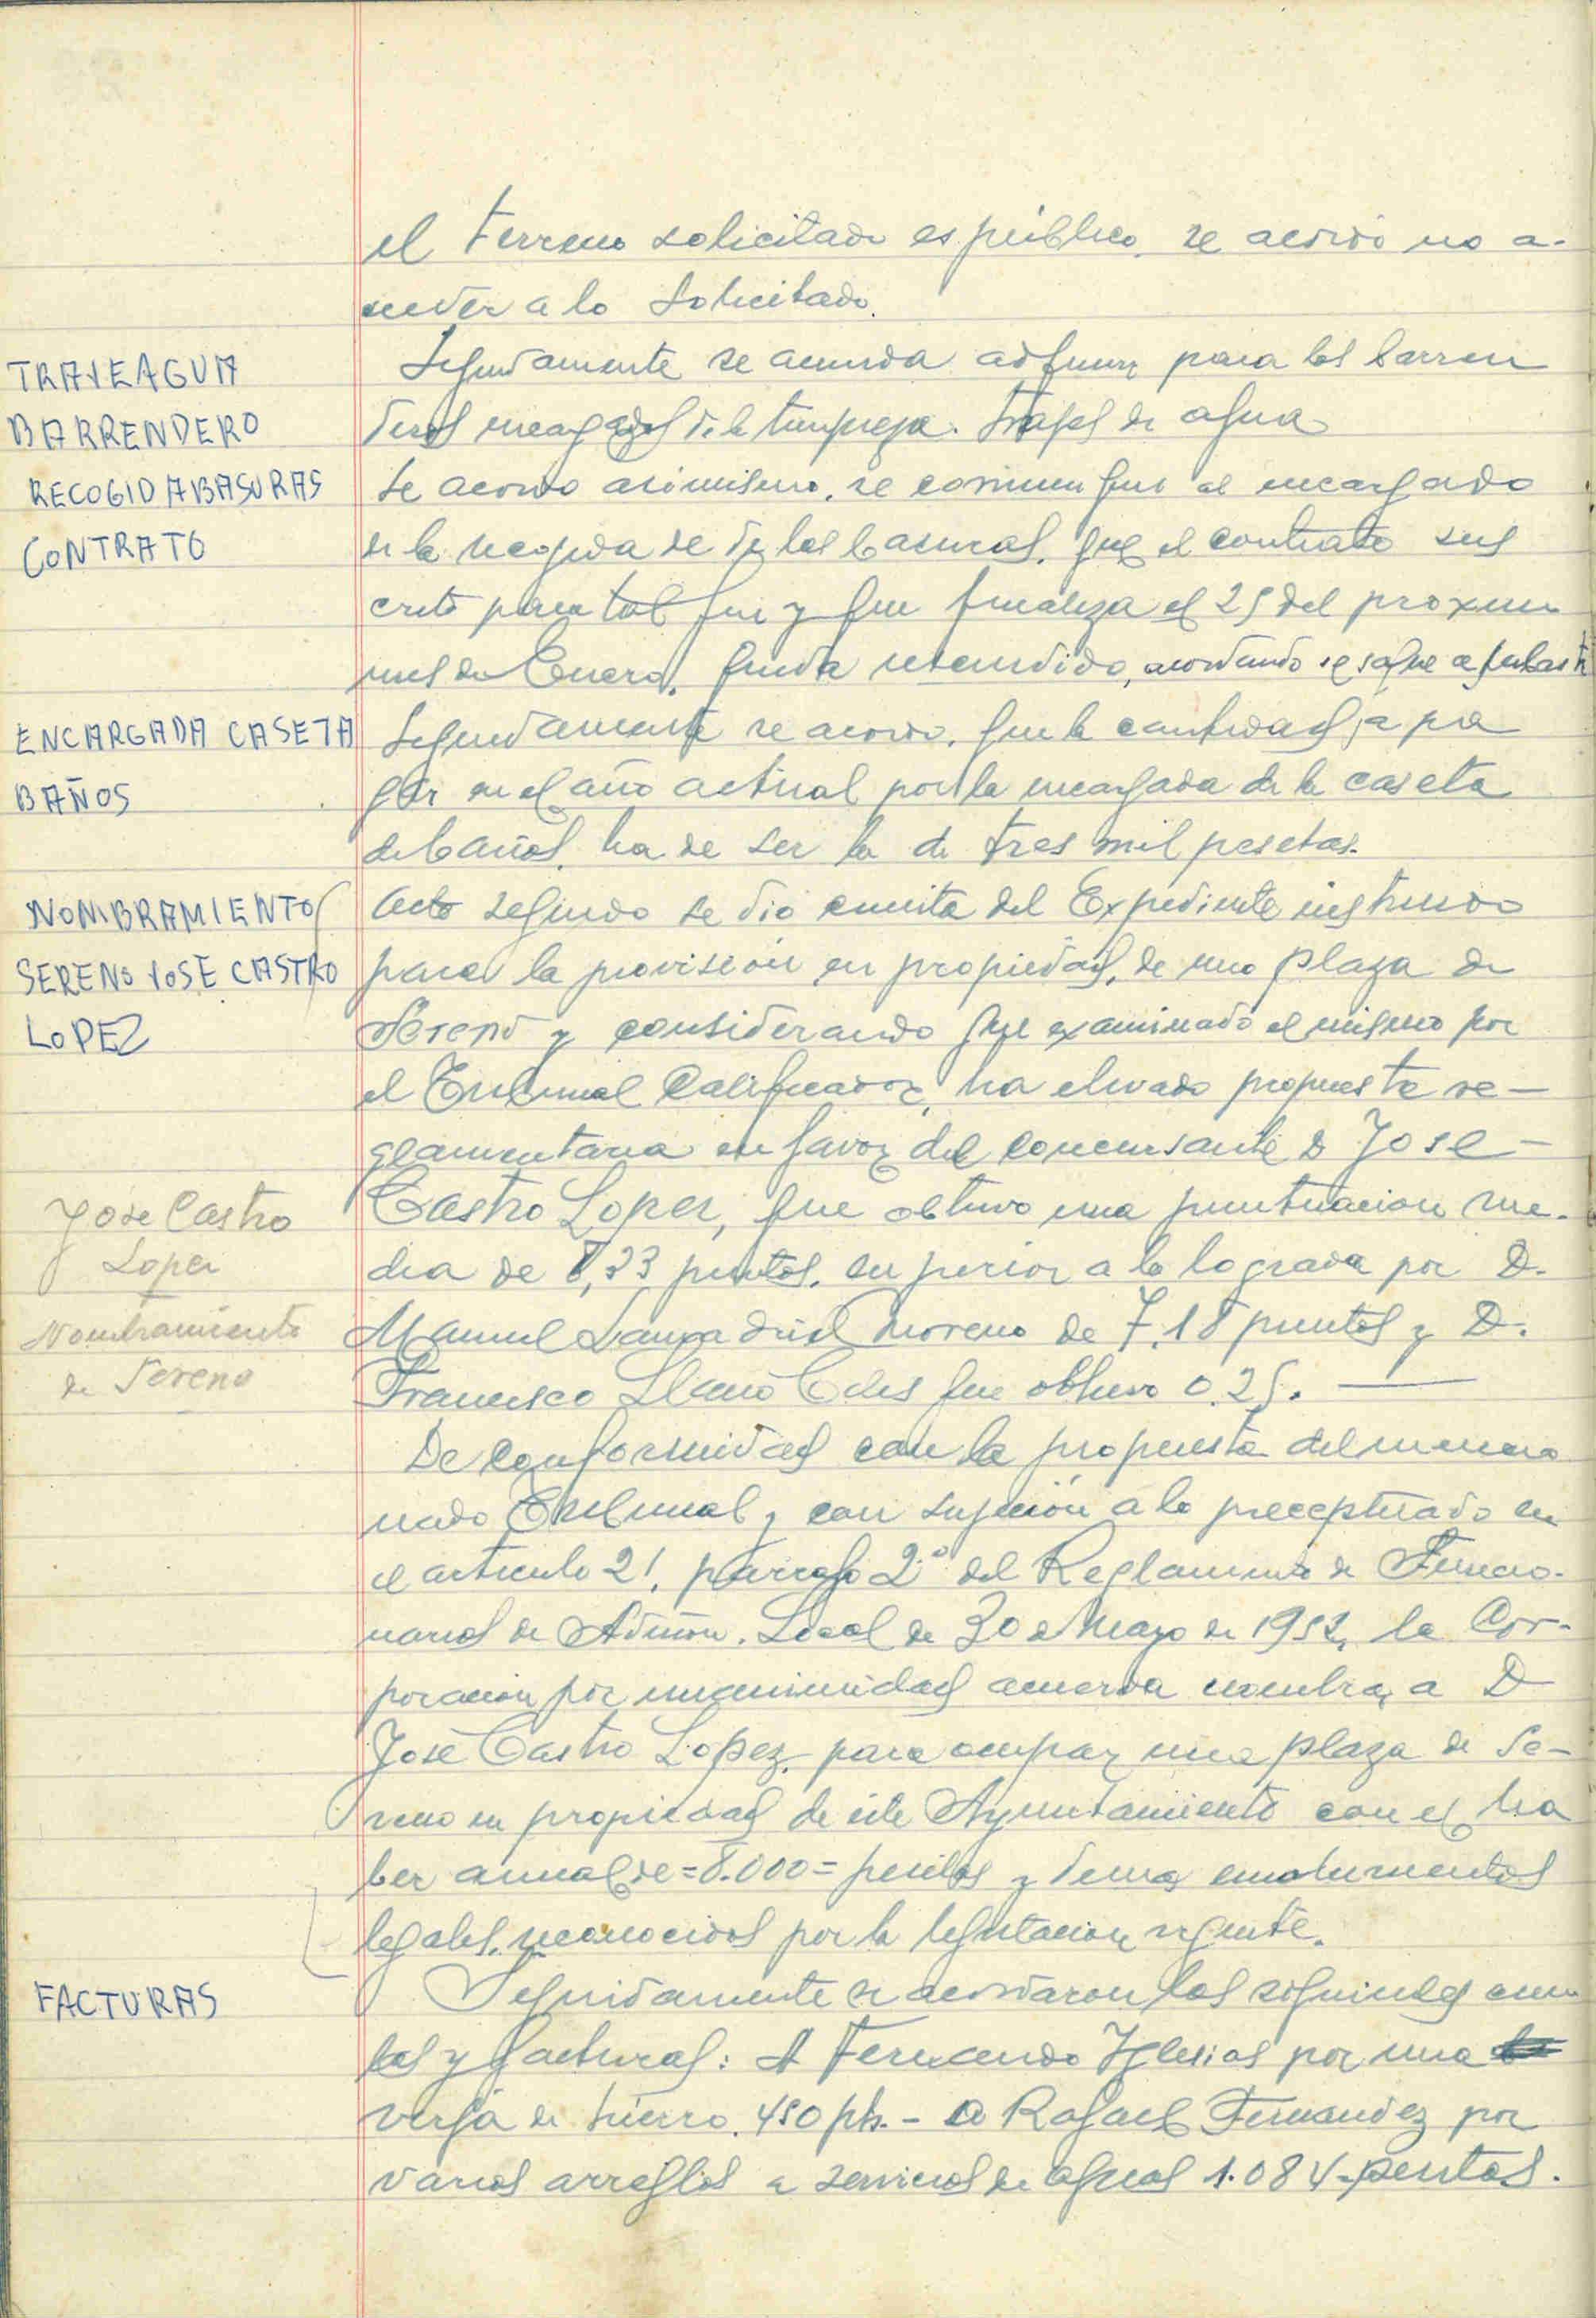 el terreno solicitado es público, se acordó no a-
cceder a lo solicitado.
TRAJE AGUA
BARRENDERO
Seguidamente se acuerda adquirir para los barren
deros encargados de la limpieza. trajes de agua
RECOGIDA BASURAS
CONTRATO
Se acordo asimismo, se comunique al encargado
de la recogida de de las basuras, que el contrato sus
crito para tal fin y que finaliza el 25 del proximo
mes de Enero, queda rescindido, acordando se saque a subasta
ENCARGADA CASETA
BAÑOS
Seguidamente se acordo, que la cantidad, a pa
gar en el año actual por la encargada de la caseta
de baños, ha de ser la de tres mil pesetas.
NOMBRAMIENTO
SERENO JOSE CASTRO
LOPEZ
Acto seguido se dio cuenta del Expediente instruido
para la provisión en propiedad, de una plaza de
Sereno y considerando que examinado el mismo por
el Tribunal Calificador, ha elevado propuesta re-
glamentaria en favor del concursante D Jose
Jose Castro
Lopez
Nombramiento
de Sereno
Castro Lopez, que obtuvo una puntuacion me-
dia de 8,23 puntos, superior a la lograda por D.
Manuel Moreno de 7,18 puntos y D.
Francisco Llano que obtuvo 0.25.
De conformidad con la propuesta del mencio
nado Tribunal y con sujeción a lo preceptuado en
el articulo 21, parrafo 2º del Reglamento de Funcio-
narios de Admón. Local de 30 de Mayo de 1952, la Cor-
poracion por unanimidad acuerda nombrar a D
José Castro Lopez, para ocupar una plaza de Se-
reno en propiedad de este Ayuntamiento con el ha
ber anual de =8.000= pesetas y demas emolumentos
legales, reconocidos por la legislacion vigente.
FACTURAS
Seguidamente se acordaron las siguientes cuen
tas y facturas: A Fernando Iglesias por una
verja de hierro, 450 pts. - a Rafael Fernandez por
varios arreglos a servicios de aguas 1.084 pesetas.